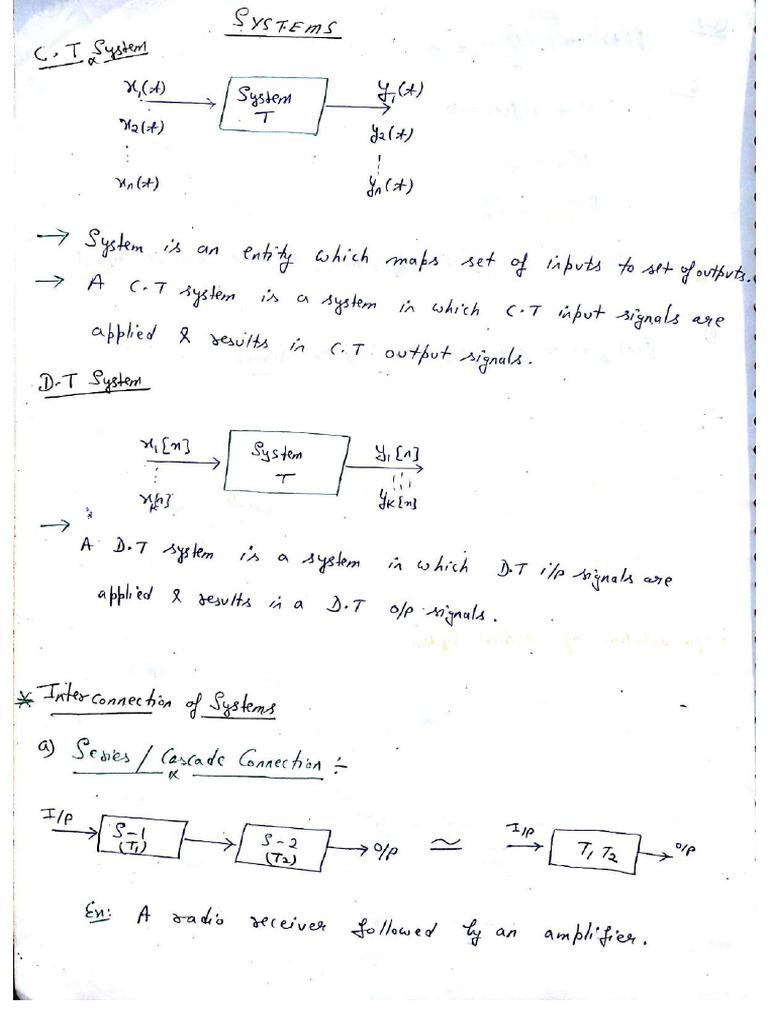 SYSTEMS
C.T System
x₁(t) System T y₁(t)
x₂(t) y₂(t)
⋮ ⋮
xₙ(t) yₙ(t)
→ System is an entity which maps set of inputs to set of outputs.
→ A C.T system is a system in which C.T input signals are
applied & results in C.T output signals.
D.T System
x₁[n] System T y₁[n]
⋮ ⋮
xₖ[n] yₖ[n]
→ A D.T system is a system in which D.T i/p signals are
applied & results in a D.T o/p signals.
* Interconnection of Systems
a) Series / Cascade Connection ÷
I/P S-1 (T₁) S-2 (T₂) O/P ≃ I/P T₁ T₂ O/P
Ex: A radio receiver followed by an amplifier.